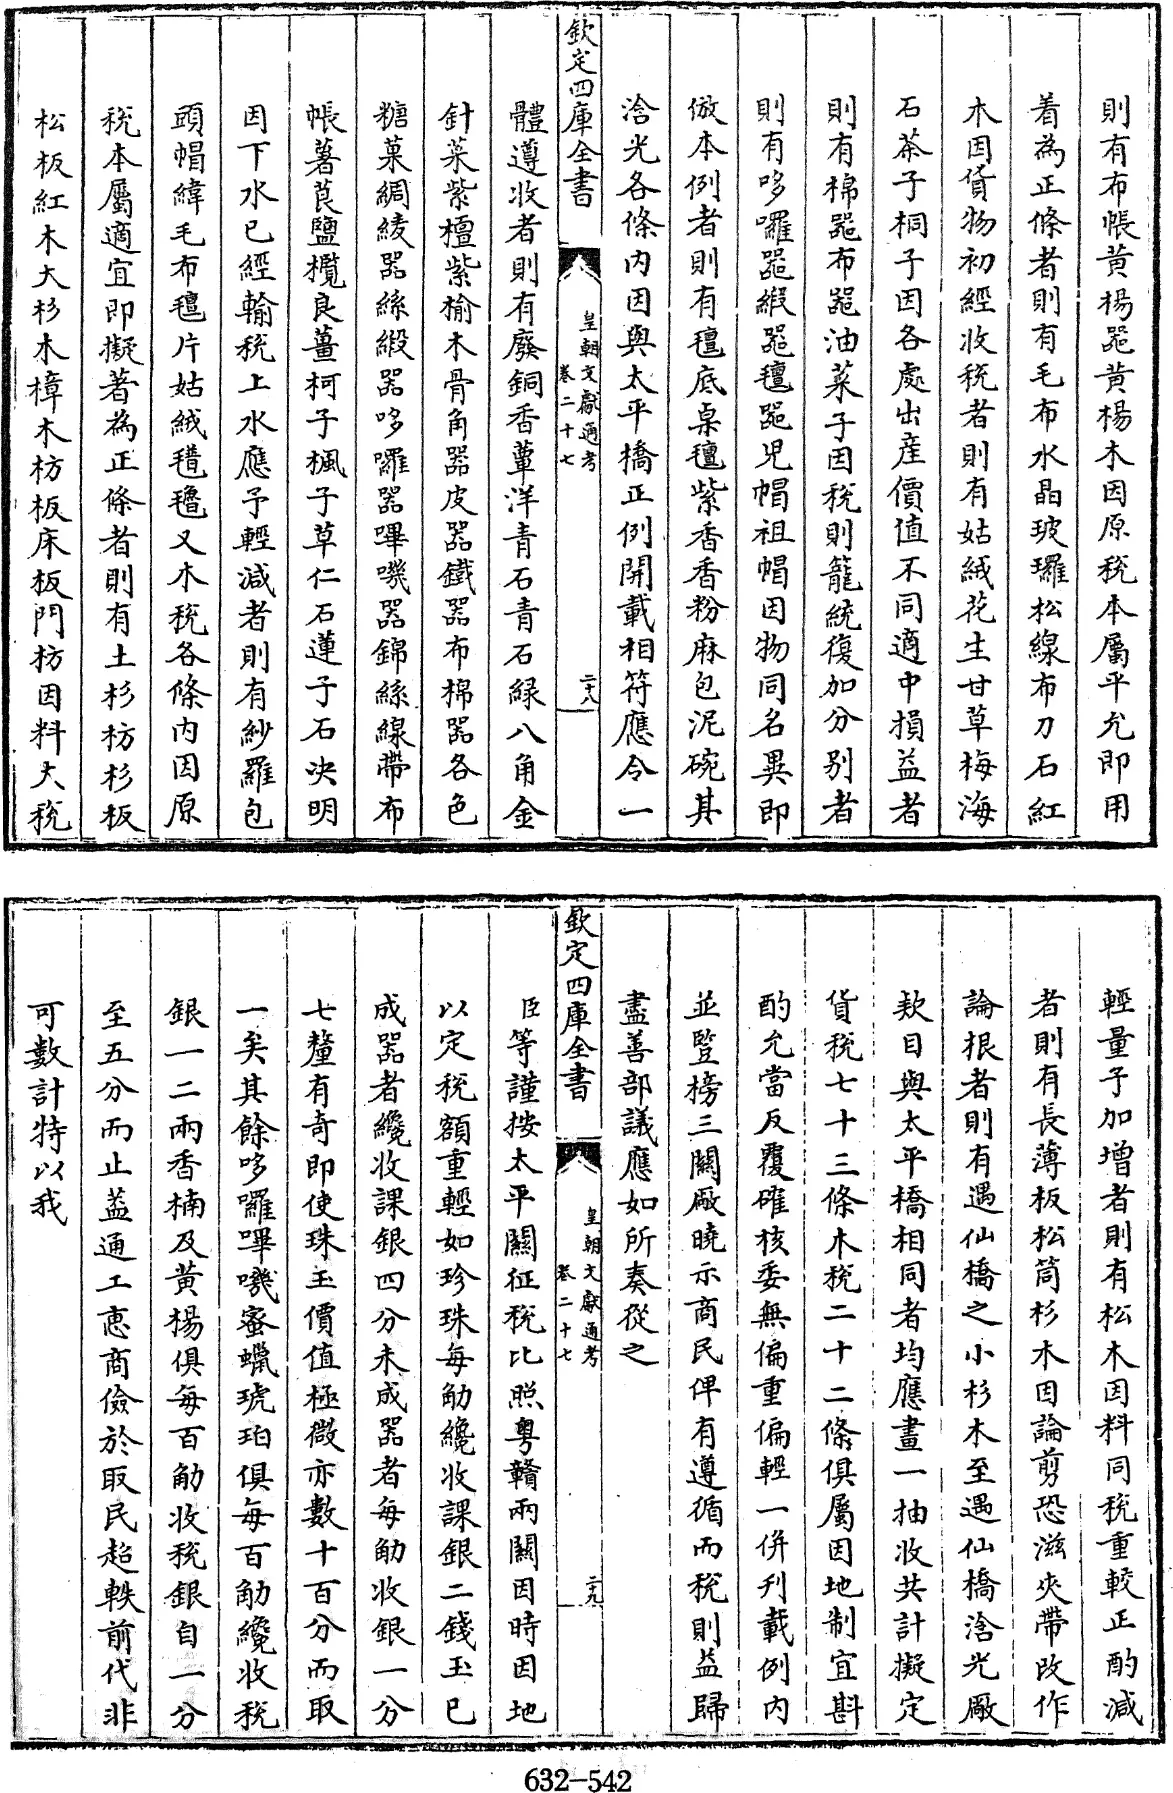 則有布帳黄楊噐黄楊木因原税本屬平允即用
着為正條者則有毛布水晶玻瓈松線布刀石紅
木因貨物初經收税者則有姑絨花生甘草梅海
石茶子桐子因各處出産價值不同適中損益者
則有棉噐布噐油菜子因税則籠統復加分别者
則有哆囉噐緞噐氊噐児帽祖帽因物同名異即
倣本例者則有氊底桌氊紫香香粉麻包泥碗其
浛光各條内因與太平橋正例開載相符應令一
欽定四庫全書
皇朝文獻通考
卷二十七
二十八
體遵收者則有廢銅香蕈洋青石青石緑八角金
針菜紫檀紫榆木骨角噐皮噐鐵噐布棉噐各色
糖菓綢綾噐絲緞噐哆囉噐嗶嘰噐錦絲線帶布
帳薯莨鹽欖良薑柯子楓子草仁石蓮子石决明
因下水已經輸税上水應予輕減者則有紗羅包
頭帽緯毛布氊片姑絨氆氇又木税各條内因原
税本屬適宜即擬著為正條者則有土杉枋杉板
松板紅木大杉木樟木枋板床板門枋因料大税
輕量子加增者則有松木因料同税重較正酌減
者則有長薄板松筒杉木因論剪恐滋夾帶改作
論根者則有遇仙橋之小杉木至遇仙橋浛光厰
欵目與太平橋相同者均應畫一抽收共計擬定
貨税七十三條木税二十二條俱屬因地制宜斟
酌允當反覆確核委無偏重偏輕一併刋載例内
並豎榜三關厰曉示商民俾有遵循而税則益歸
盡善部議應如所奏從之
欽定四庫全書
皇朝文獻通考
卷二十七
二十九
臣等謹按太平關征税比照粤贛兩關因時因地
以定税額重輕如珍珠每觔纔收課銀二錢玉已
成噐者纔收課銀四分未成噐者每觔收銀一分
七釐有奇即使珠玉價值極微亦數十百分而取
一矣其餘哆囉嗶嘰蜜蠟琥珀俱每百觔纔收税
銀一二兩香楠及黄楊俱每百觔收税銀自一分
至五分而止葢通工惠商儉於取民超軼前代非
可數計特以我
632-542